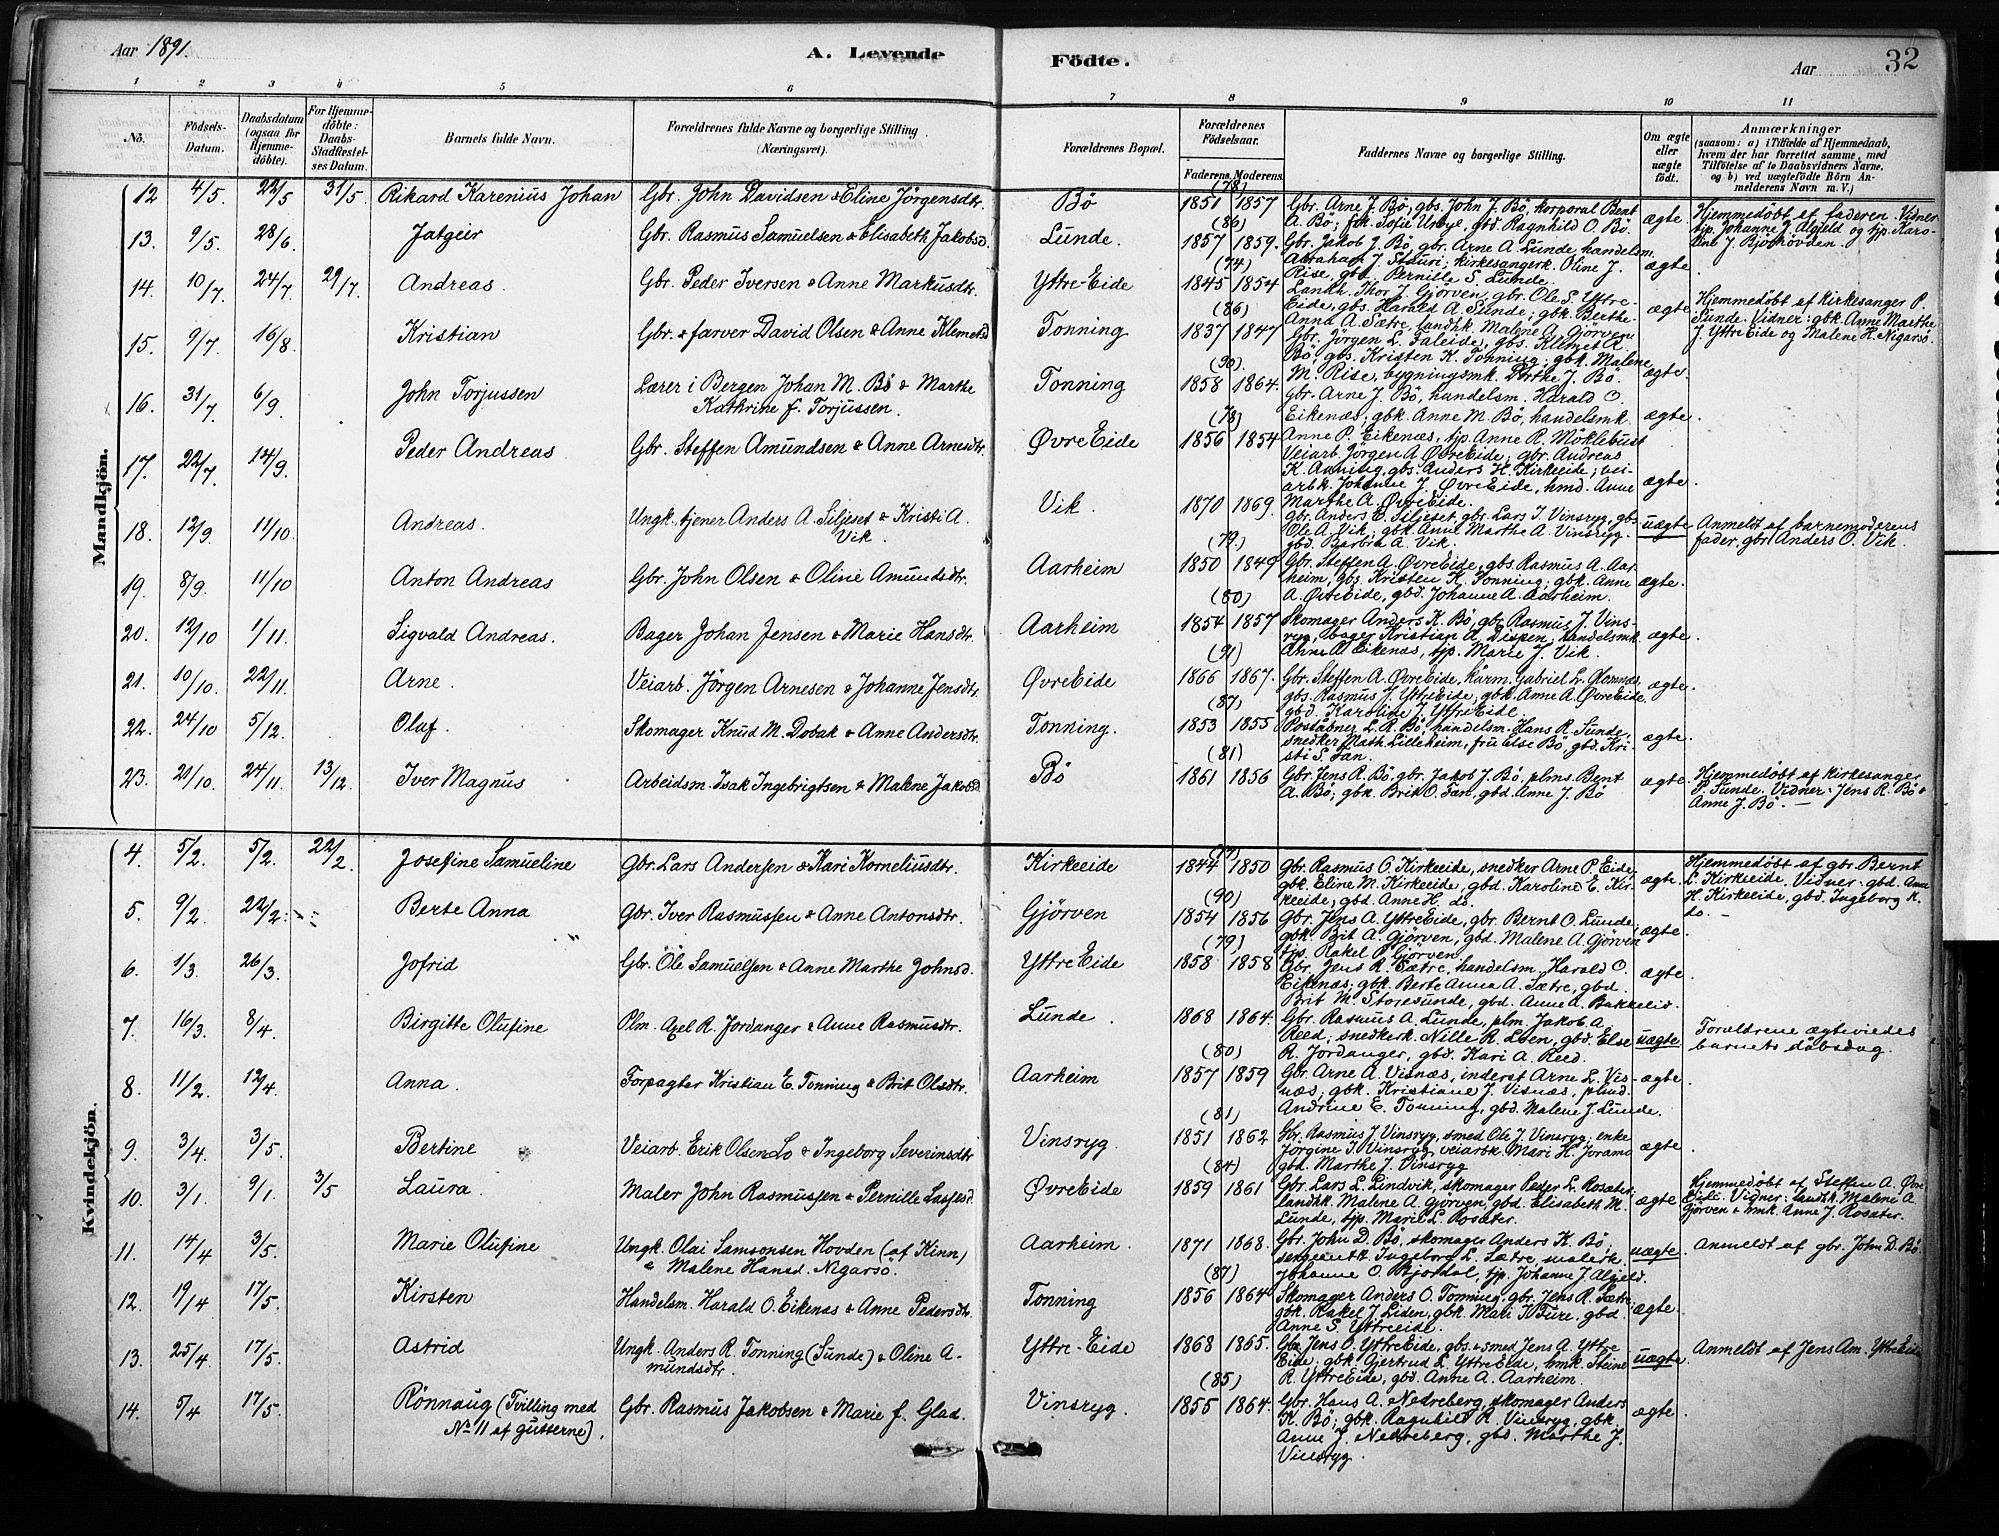 Aar 1891.
A. Levende Födte.
Aar
32
1 2 3 4 5 6 7 8 9 10 11
No. Födsels-Datum. Daabsdatum (ogsaa for Hjemmedöbte). For Hjemmedöbte: Daabs-Stadfæstelses Datum. Barnets fulde Navn. Forældrenes fulde Navne og borgerlige Stilling (Næringsvei). Forældrenes Bopæl. Forældrenes Födselsaar. Faderens. Moderens. Faddernes Navne og borgerlige Stilling. Om ægte eller uægte födt. Anmærkninger (saasom: a) i Tilfælde af Hjemmedaab, hvem der har forrettet samme, med Tilföielse af to Daabsvidners Navne, og b) ved uægtefödte Börn Anmelderens Navn m. V.)
Mandkjön.
12 4/5 22/5 31/5 Rikard Karenius Johan Gbr. John Davidsen & Eline Jörgensdtr. Bö (78) 1851 1857 Gbr. Arne J. Bö, gbs. John J. Bö, korporal Bent A. Bö; frk. Sofie Urbye, gbd. Ragnhild O. Bö. ægte Hjemmedöbt af faderen. Vidner tjp. Johanne J. Algjeld og tjp. Karoline J. Bjorhovden.
13. 9/5. 28/6. Jatgeir Gbr. Rasmus Samuelsen & Elisabeth Jakobsd. Lunde. (86) 1857 1859. Gbr. Jakob J. Bö, gbr. Arne A. Lunde, handelsm. Abraham J. Stauri; kirkesangerk. Oline J. Rise, gbd. Pernille S. Lunde. ægte.
14. 10/7. 24/7 29/7. Andreas. Gbr. Peder Iversen & Anne Markusdtr. Yttre-Eide (74) 1845 1854 Landh. Thor J. Gjörven, gbr. Ole S. Yttre-Eide, gbs. Harald A. Sunde; gbk. Berthe Anna A. Sætre, landhk. Malene A. Gjörven ægte. Hjemmedöbt af kirkesanger P. Sunde. Vidner: gbk. Anne Marthe J. Yttre Eide og Malene H. Nigarsö.
15. 9/7. 16/8. Kristian Gbr. & farver David Olsen & Anne Klemetsd Tonning (86) 1837 1847 Gbr. Jörgen L. Faleide, gbs. Klemet A. Bö, gbs. Kristen K. Tonning; gbk. Malene M. Rise, bygningsmk. Dorthe J. Bö. ægte.
16. 31/7 6/9. John Torjussen Lærer i Bergen Johan M. Bö & Marthe Kathrine f. Torjussen. Tonning (90) 1858 1864. Gbr. Arne J. Bö, handelsm. Harald O. Eikenæs; gbk. Anne M. Bö, handelsmk. Anne P. Eikenæs, tjp. Anne R. Möklebust ægte.
17. 22/7. 14/9. Peder Andreas Gbr. Steffen Amundsen & Anne Arnesdtr. Øvre Eide (78) 1856 1854 Veiarb. Jörgen A. Øvre Eide, gbr. Andreas K. Aaning, gbs. Anders H. Kirkeeide; veiarbk. Johanne J. Øvre Eide, hmd. Anne Marthe A. Øvre Eide. ægte.
18. 12/9. 11/10. Andreas. Ungk. tjener Anders A. Siljeset & Kristi A. Vik. Vik. 1870 1869. gbr. Anders E. Siljeset, gbr. Lars I. Vinsryg, gbs. Ole A. Vik; gbk. Anne Marthe A. Vinsryg. gbd. Barbra A. Vik. uægte Anmeldt af barnemoderens fader, gbr Anders O. Vik.
19. 8/9. 11/10 Anton Andreas Gbr. John Olsen & Oline Amundsdtr. Aarheim (79.) 1850 1849 Gbr. Steffen A. Øvre Eide, gbs. Rasmus A. Aarheim, gbs. Kristen K. Tonning; gbk. Anne A. Øvre Eide, gbd. Johanne A. Aarheim. ægte.
20. 12/10 1/11. Sigvald Andreas. Bager Johan Jensen & Marie Hansdtr. Aarheim (80) 1854 1857 Skomager Anders K. Bö, gbr Rasmus J. Vinsryg, bager Kristian A. Dispen; handelsmk. Anne P. Eikenæs, tjp. Marie J. Vik. ægte.
21. 10/10. 22/11. Arne. Veiarb. Jörgen Arnesen & Johanne Jensdtr. Øvre Eide (91) 1866 1867. Gbr. Steffen A. Øvre Eide, kårm. Gabriel L. Glomnæs, gbs. Rasmus J. Yttre Eide; gbk. Anne A. Øvre Eide, gbd. Karoline J. Yttre Eide. ægte.
22. 24/10 5/12. Olaf. Skomager Knud M. Dobak & Anne Andersdtr. Tonning. (87) 1853 1855 Postaabner L. R. Bö, handelsm. Hans R. Sunde, snedker Math. Lilleheim, fru Else Bö, gbd. Kristi S. Tan. ægte.
23. 21/10. 24/11. 13/12. Iver Magnus Arbeidsm. Isak Ingebrigtsen & Malene Jakobsd. Bö (81) 1861 1856 Gbr. Jens R. Bö, gbr. Jakob J. Bö, plms. Bent A. Bö; gbk. Brit O. Tan, gbd. Anne J. Bö ægte. Hjemmedöbt af kirkesanger P. Sunde. Vidner: Jens R. Bö & Anne J. Bö. —
Kvindekjön.
4. 5/2. 5/2. 22/2 Josefine Samueline Gbr. Lars Andersen & Kari Korneliusdtr. Kirkeeide 1844 1850 Gbr. Rasmus O. Kirkeeide, snedker Arne P. Eide, gbk. Eline M. Kirkeeide, gbd. Karoline E. Kirkeeide, gbd. Anne H. do. ægte. Hjemmedöbt af gbr. Bernt L. Kirkeeide. Vidner: gbd. Anne H. Kirkeeide, gbd. Ingeborg K. do. —
5. 9/2 22/2. Berte Anna Gbr. Iver Rasmussen & Anne Antonsdtr. Gjörven (90) 1854 1856 Gbr. Jens A. Yttre Eide, gbr. Bernt O. Lunde, gbk. Brit A. Gjörven, gbd. Malene A. Gjörven tjp. Rakel P. Gjörven. ægte.
6. 1/3. 26/3. Jofrid Gbr. Ole Samuelsen & Anne Marthe Johnsd. Yttre Eide (79) 1858 1858 Gbr. Jens R. Sætre, handelsm. Harald O. Eikenæs; gbk. Berte Anna A. Sætre, gbd. Brit M. Storesunde, gbd. Anne A. Bakkelid. ægte.
7. 16/3. 8/4. Birgitte Olufine Plm. Axel R. Jordanger & Anne Rasmusdtr. Lunde. 1868 1864. Gbr. Rasmus A. Lunde, plm Jakob A. Reed; snedkerk. Nille R. Loen, gbd. Else R. Jordanger, gbd. Kari A. Reed. uægte Forældrene ægteviedes barnets dåbsdag.
8. 11/2. 12/4. Anna. Forpagter Kristian E. Tonning & Brit Olsdtr. Aarheim (80) 1857 1859 Gbr. Arne A. Visnæs, inderst Arne L. Visnæs, gbk. Kristiane J. Visnæs, plmd. Andrine E. Tonning, gbd. Malene J. Lunde. ægte.
9. 3/4. 3/5. Bertine Veiarb. Erik Olsen Lo & Ingeborg Severinsdtr Vinsryg. (81) 1851 1862 Gbr. Rasmus J. Vinsryg, smed Ole J. Vinsryg; enke Jörgine I. Vinsryg, veiarbk. Mari H. Joramo gbd. Marthe J. Vinsryg ægte.
10. 3/1. 9/1. 3/5 Laura. Maler John Rasmussen & Pernille Lassesd. Øvre Eide (84) 1859 1861 Gbr. Lars L. Lindvik, skomager Peder L. Rosæter; landhk. Malene A. Gjörven, gbd. Elisabeth M. Lunde, tjp. Marie L. Rosæter. ægte Hjemmedöbt af Steffen A. Øvre Eide. Vidner: landhk. Malene A. Gjörven & hmk. Anne J. Rosæter.
11. 14/4 3/5. Marie Olufine Ungk. Olai Samsonsen Hovden (af Kinn) & Malene Hansd. Nigarsö. Aarheim. 1871 1868. Gbr. John D. Bö, skomager Anders K. Bö; sergeantk. Ingeborg L. Sætre, malerk. Johanne O. Bjordal, tjp. Johanne J. Algjeld. uægte. Anmeldt af gbr. John D. Bö.
12. 19/4 17/5. Kirsten Handelsm. Harald O. Eikenæs & Anne Pedersdtr. Tonning (87) 1856 1864 Skomager Anders O. Tonning, gbr. Jens R. Sætre; gbk. Rakel J. Liden, gbk. Mari I. Bure, gbd. Anne S. Yttreeide. ægte.
13. 25/4. 17/5. Astrid Ungk. Anders R. Tonning (Sunde) & Oline Amundsdtr. Yttre-Eide 1868 1865. Gbr Jens O. Yttre Eide, gbs. & smed Jens A. Yttre Eide, gbk. Gjertrud L. Yttre Eide, hmk. Steine R. Yttre Eide, gbd. Anne A. Aarheim. uægte. Anmeldt af Jens Am. Yttre Eide
14. 5/4 17/5. Rönnaug (Tvilling med No 11 af gutterne). Gbr. Rasmus Jakobsen & Marie f. Glad. Vinsryg. (85) 1855 1864. Gbr. Hans A. Nedreberg, skomager Anders K. Bö; gbk. Ragnhild R. Vinsryg, gbk. Anne J. Nedreberg, gbd. Marthe J. Vinsryg. ægte.